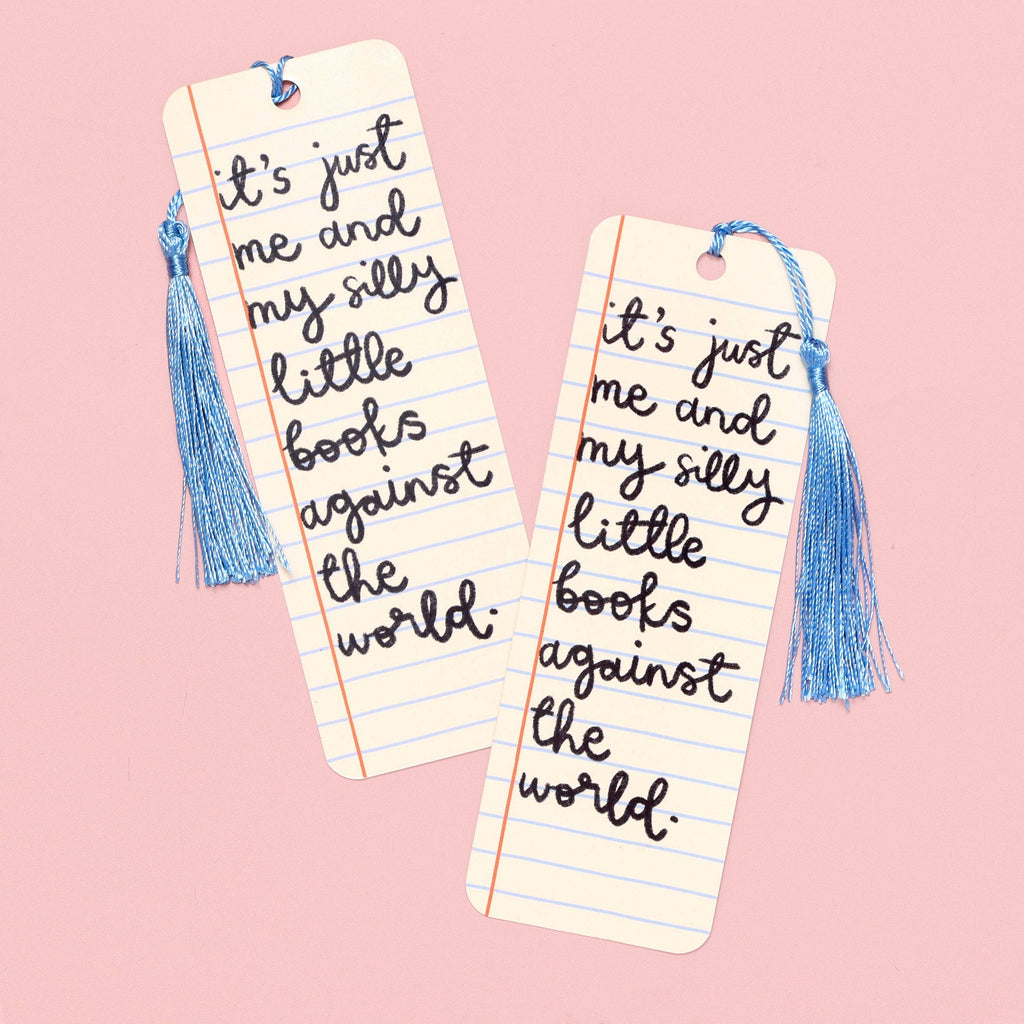 it's just
me and
my silly
little
books
against
the
world.
it's just
me and
my silly
little
books
against
the
world.